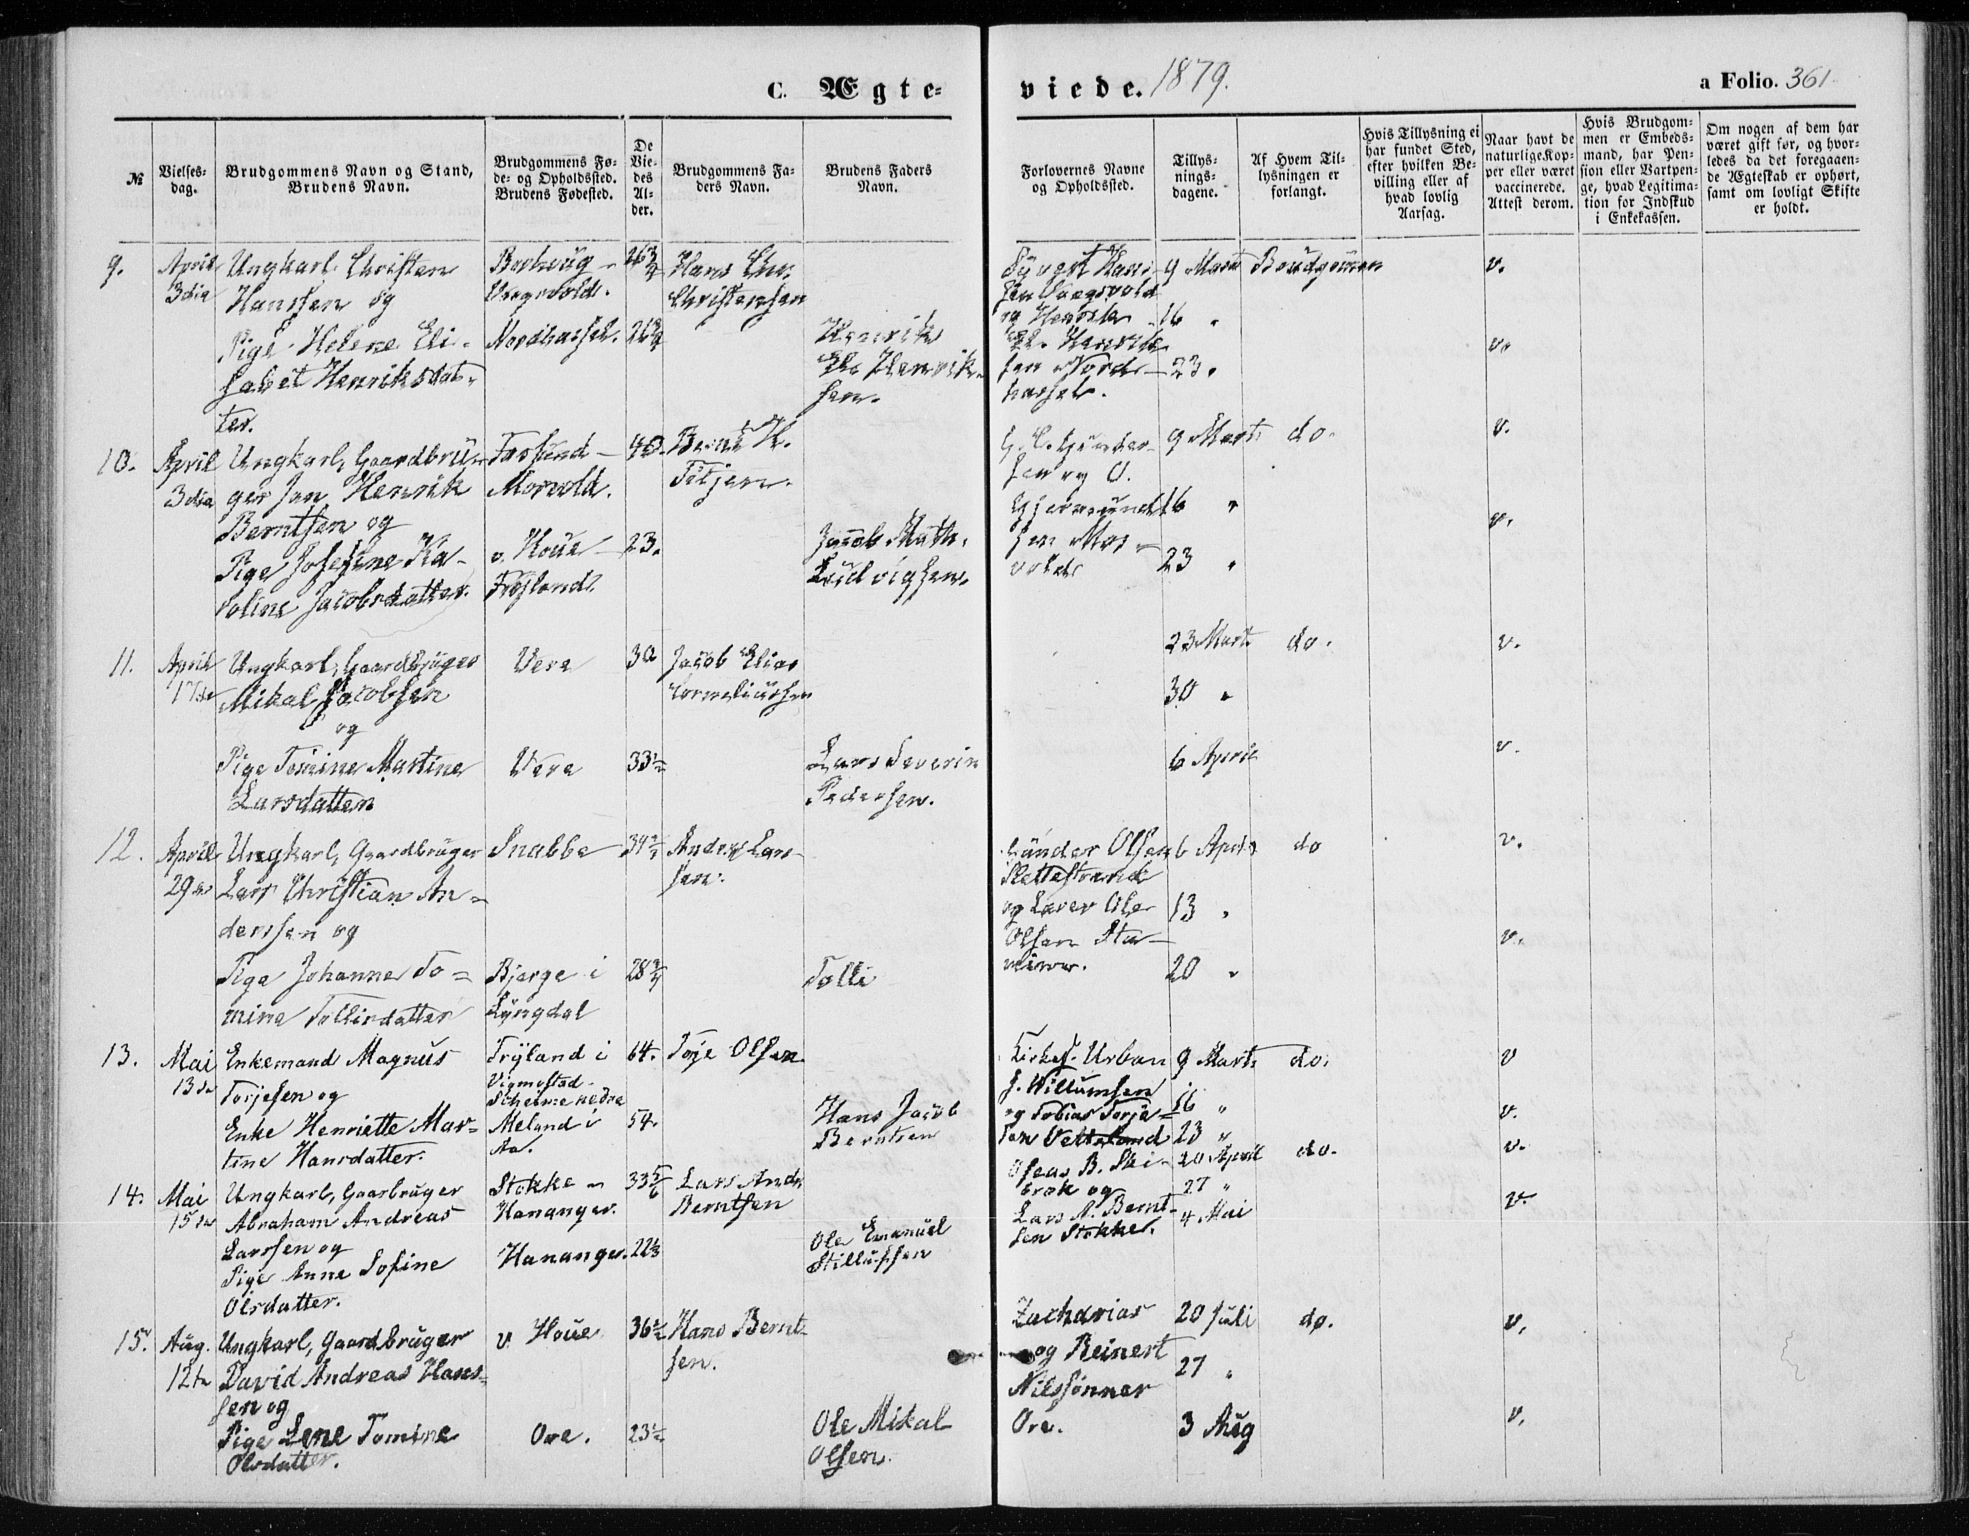 C. Ægte-
viede. 1879.
a Folio. 361
№
Vielses-
dag.
Brudgommens Navn og Stand,
Brudens Navn.
Brudgommens Fø-
de- og Opholdssted.
Brudens Fødested.
De
Vie-
des
Al-
der.
Brudgommens Fa-
ders Navn.
Brudens Faders
Navn.
Forlovernes Navne
og Opholdssted.
Tillys-
nings-
dagene.
Af Hvem Til-
lysningen er
forlangt.
Hvis Tillysning ei
har fundet Sted,
efter hvilken Be-
villing eller af
hvad lovlig
Aarsag.
Naar havt de
naturlige Kop-
per eller været
vaccinerede.
Attest derom.
Hvis Brudgom-
men er Embeds-
mand, har Pen-
sion eller Vartpen-
ge, hvad Legitima-
tion for Indskud
i Enkekassen.
Om nogen af dem har
været gift før, og hvor-
ledes da det foregaaen-
de Ægteskab er ophørt,
samt om lovligt Skifte
er holdt.
9.
April
3die
Ungkarl Christen
Hanssen og
Pige Helene Eli-
sabet Henriksdat-
ter.
Borhaug -
Vaagsvold.
Nordhassel.
26 3/4
Hans Chr.
Christensen
Henrik
El. Henrik-
sen.
Hans-
sen Vaagsvold
og Henrik
El. Henrik
sen Nord-
hassel.
9 Marts
16 "
23 "
Brudgommen
v.
v.
10.
April
3die
Ungkarl, Gaardbru-
ger Jan Henrik
Berntsen og
Pige Josefine Ka-
roline Jacobsdatter.
Farsund -
Morvold.
v. Houe -
Frøjland.
40.
23.
Bernt H.
Titjen.
Jacob Math.
Ludvigsen.
G. C. Gunder-
sen og O.
Gjermund
sen Mor-
vold
9 Marts
16 "
23 "
do.
v.
v.
11.
April
17de
Ungkarl, Gaardbruger
Mikal Jacobsen
og
Pige Tomine Martine
Larsdatter
Vere
Vere
30
33 1/2
Jacob Elias
Corneliussen
Lars Severin
Pedersen.
23 Marts
30 "
6 April
do.
v.
v.
12.
April
29de
Ungkarl, Gaardbruger
Lars Christian An-
derssen og
Pige Johanne To-
mine Tollisdatter
Snabbe
Bjerge i
Lyngdal
28 3/4
Anders Lar-
sen.
Tolli
Gunder Olsen
Slettestrand
og Ole
Olsen
6 April
13 "
20 "
do
v.
v.
13.
Mai
13de
Enkemand Magnus
Torjesen og
Enke Henriette Mar-
tine Hansdatter.
Tryland i
Vigmostad -
Meland i
Aa.
64.
54.
Torje Olsen
Hans Jacob
Berntsen
Kirkes. Urban
S. Willumsen
og Tobias Torje-
sen Vetteland
9 Marts
16 "
23 "
do.
v
v.
14.
Mai
15de
Ungkarl, Gaarbruger
Abraham Andreas
Larssen og
Pige Anne Sofine
Olsdatter.
Stokke -
Hananger.
Hananger.
33 5/6
22 1/3
Lars Andr.
Berntsen
Ole Emanuel
Stillufsen
Oseas B. Ski-
brok og
Lars A. Bernt-
sen Stokke.
20 April
27 "
4 Mai
do.
v.
v.
15.
Aug.
12te
Ungkarl, Gaardbruger
David Andreas Hans-
sen og
Pige Lene Tomine
Olsdatter.
v. Houe
Ore.
36 1/2
23 1/2
Hans Bernt-
sen.
Ole Mikal
Olsen.
Zacharias
og Reinert
Nilssønner
Ore.
20 Juli
27 "
3 Aug
do.
v.
v.